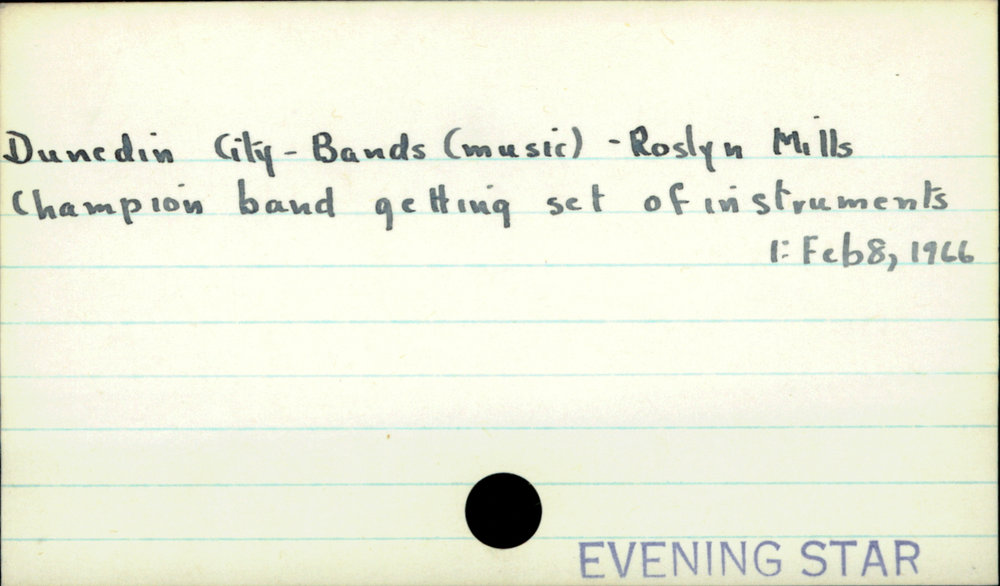 Dunedin City - Bands (music) - Roslyn Mills
Champion band getting set of instruments
1: Feb 8, 1966
EVENING STAR